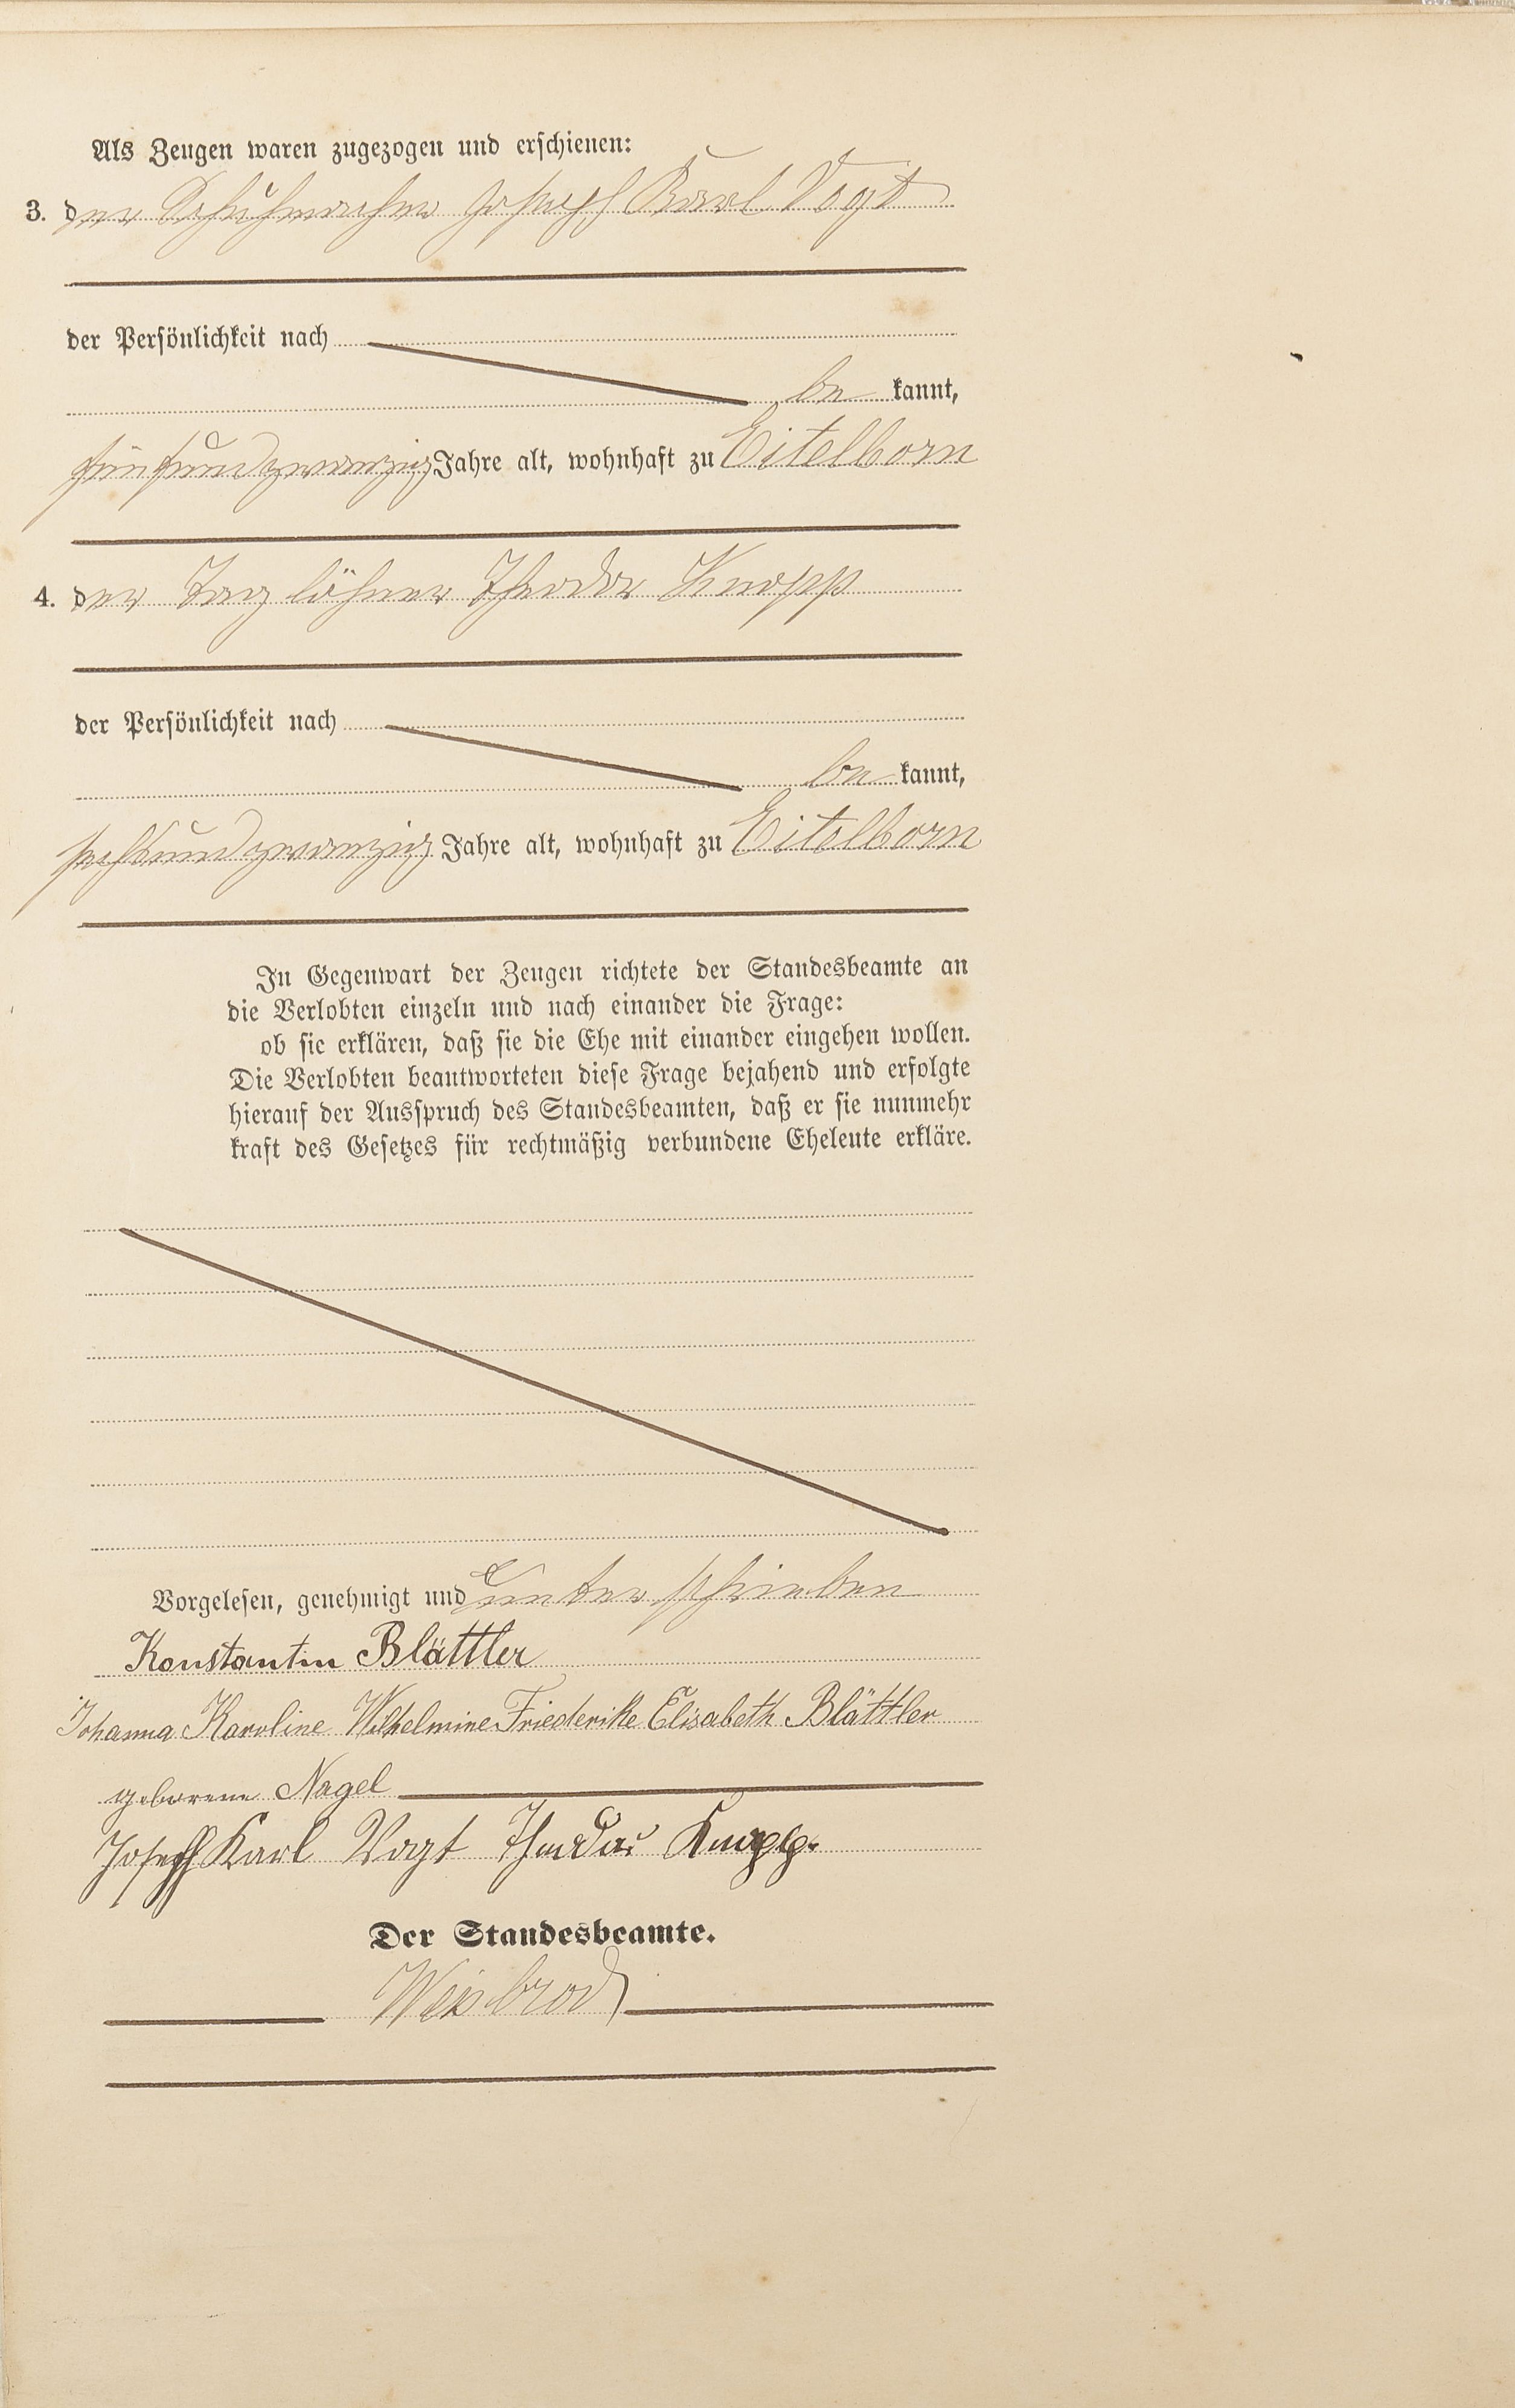 Als Zeugen waren zugezogen und erschienen:
3. der Schuhmacher Joseph Karl Vogt
der Persönlichkeit nach
be kannt,
fünfundzwanzig Jahre alt, wohnhaft zu Eitelborn
4. der Taglöhner Theodor Knopp
der Persönlichkeit nach
be kannt,
sechsundzwanzig Jahre alt, wohnhaft zu Eitelborn
In Gegenwart der Zeugen richtete der Standesbeamte an
die Verlobten einzeln und nach einander die Frage:
ob sie erklären, daß sie die Ehe mit einander eingehen wollen.
Die Verlobten beantworteten diese Frage bejahend und erfolgte
hierauf der Ausspruch des Standesbeamten, daß er sie nunmehr
kraft des Gesetzes für rechtmäßig verbundene Eheleute erkläre.
Vorgelesen, genehmigt und unterschrieben
Konstantin Blättler
Johanna Karoline Wilhelmine Friederike Elisabeth Blättler
geborene Nagel
Joseph Karl Vogt Theodor Knopp.
Der Standesbeamte.